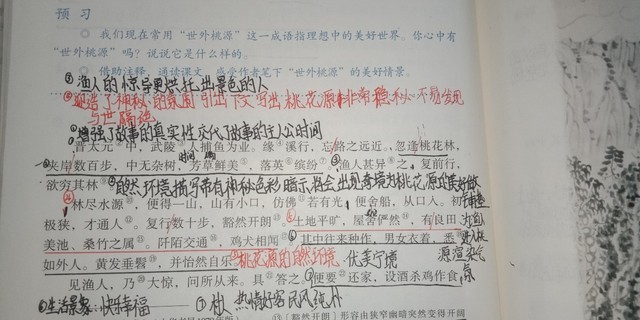 预 习
◎ 我们现在常用“世外桃源”这一成语指理想中的美好世界。你心中有
“世外桃源”吗？说说它是什么样的。
◎ 借助注释，通读课文，感受作者笔下“世外桃源”的美好情景。
渔人的惊异更烘托出景色的人
制造了神秘的氛围 引出下文 写出桃花源非常稳秘 不易发现
与世隔绝
增强了故事的真实性交代了故事的主人公时间
晋太元①中，武陵②人捕鱼为业。缘③溪行，忘路之远近。忽逢桃花林，
夹岸数百步，中无杂树，芳草鲜美，落英缤纷。渔人甚异之，复前行，
时间
欲穷其林
自然环境描写带有神秘色彩暗示将会出现奇境为桃花源
林尽水源，便得一山，山有小口，仿佛若有光，便舍船，从口入。初
极狭，才通人。复行数十步，豁然开朗。土地平旷，屋舍俨然，有良田、
美池、桑竹之属。阡陌交通，鸡犬相闻。其中往来种作，男女衣着，悉
如外人。黄发垂髫，并怡然自乐。
桃花源的自然环境 优美宁境
源渲染气
氛
见渔人，乃大惊，问所从来。具答之。便要还家，设酒杀鸡作食，
生活景象：快乐幸福
热情好客 民风纯朴
〔豁然开朗〕形容由狭窄幽暗突然变得开阔